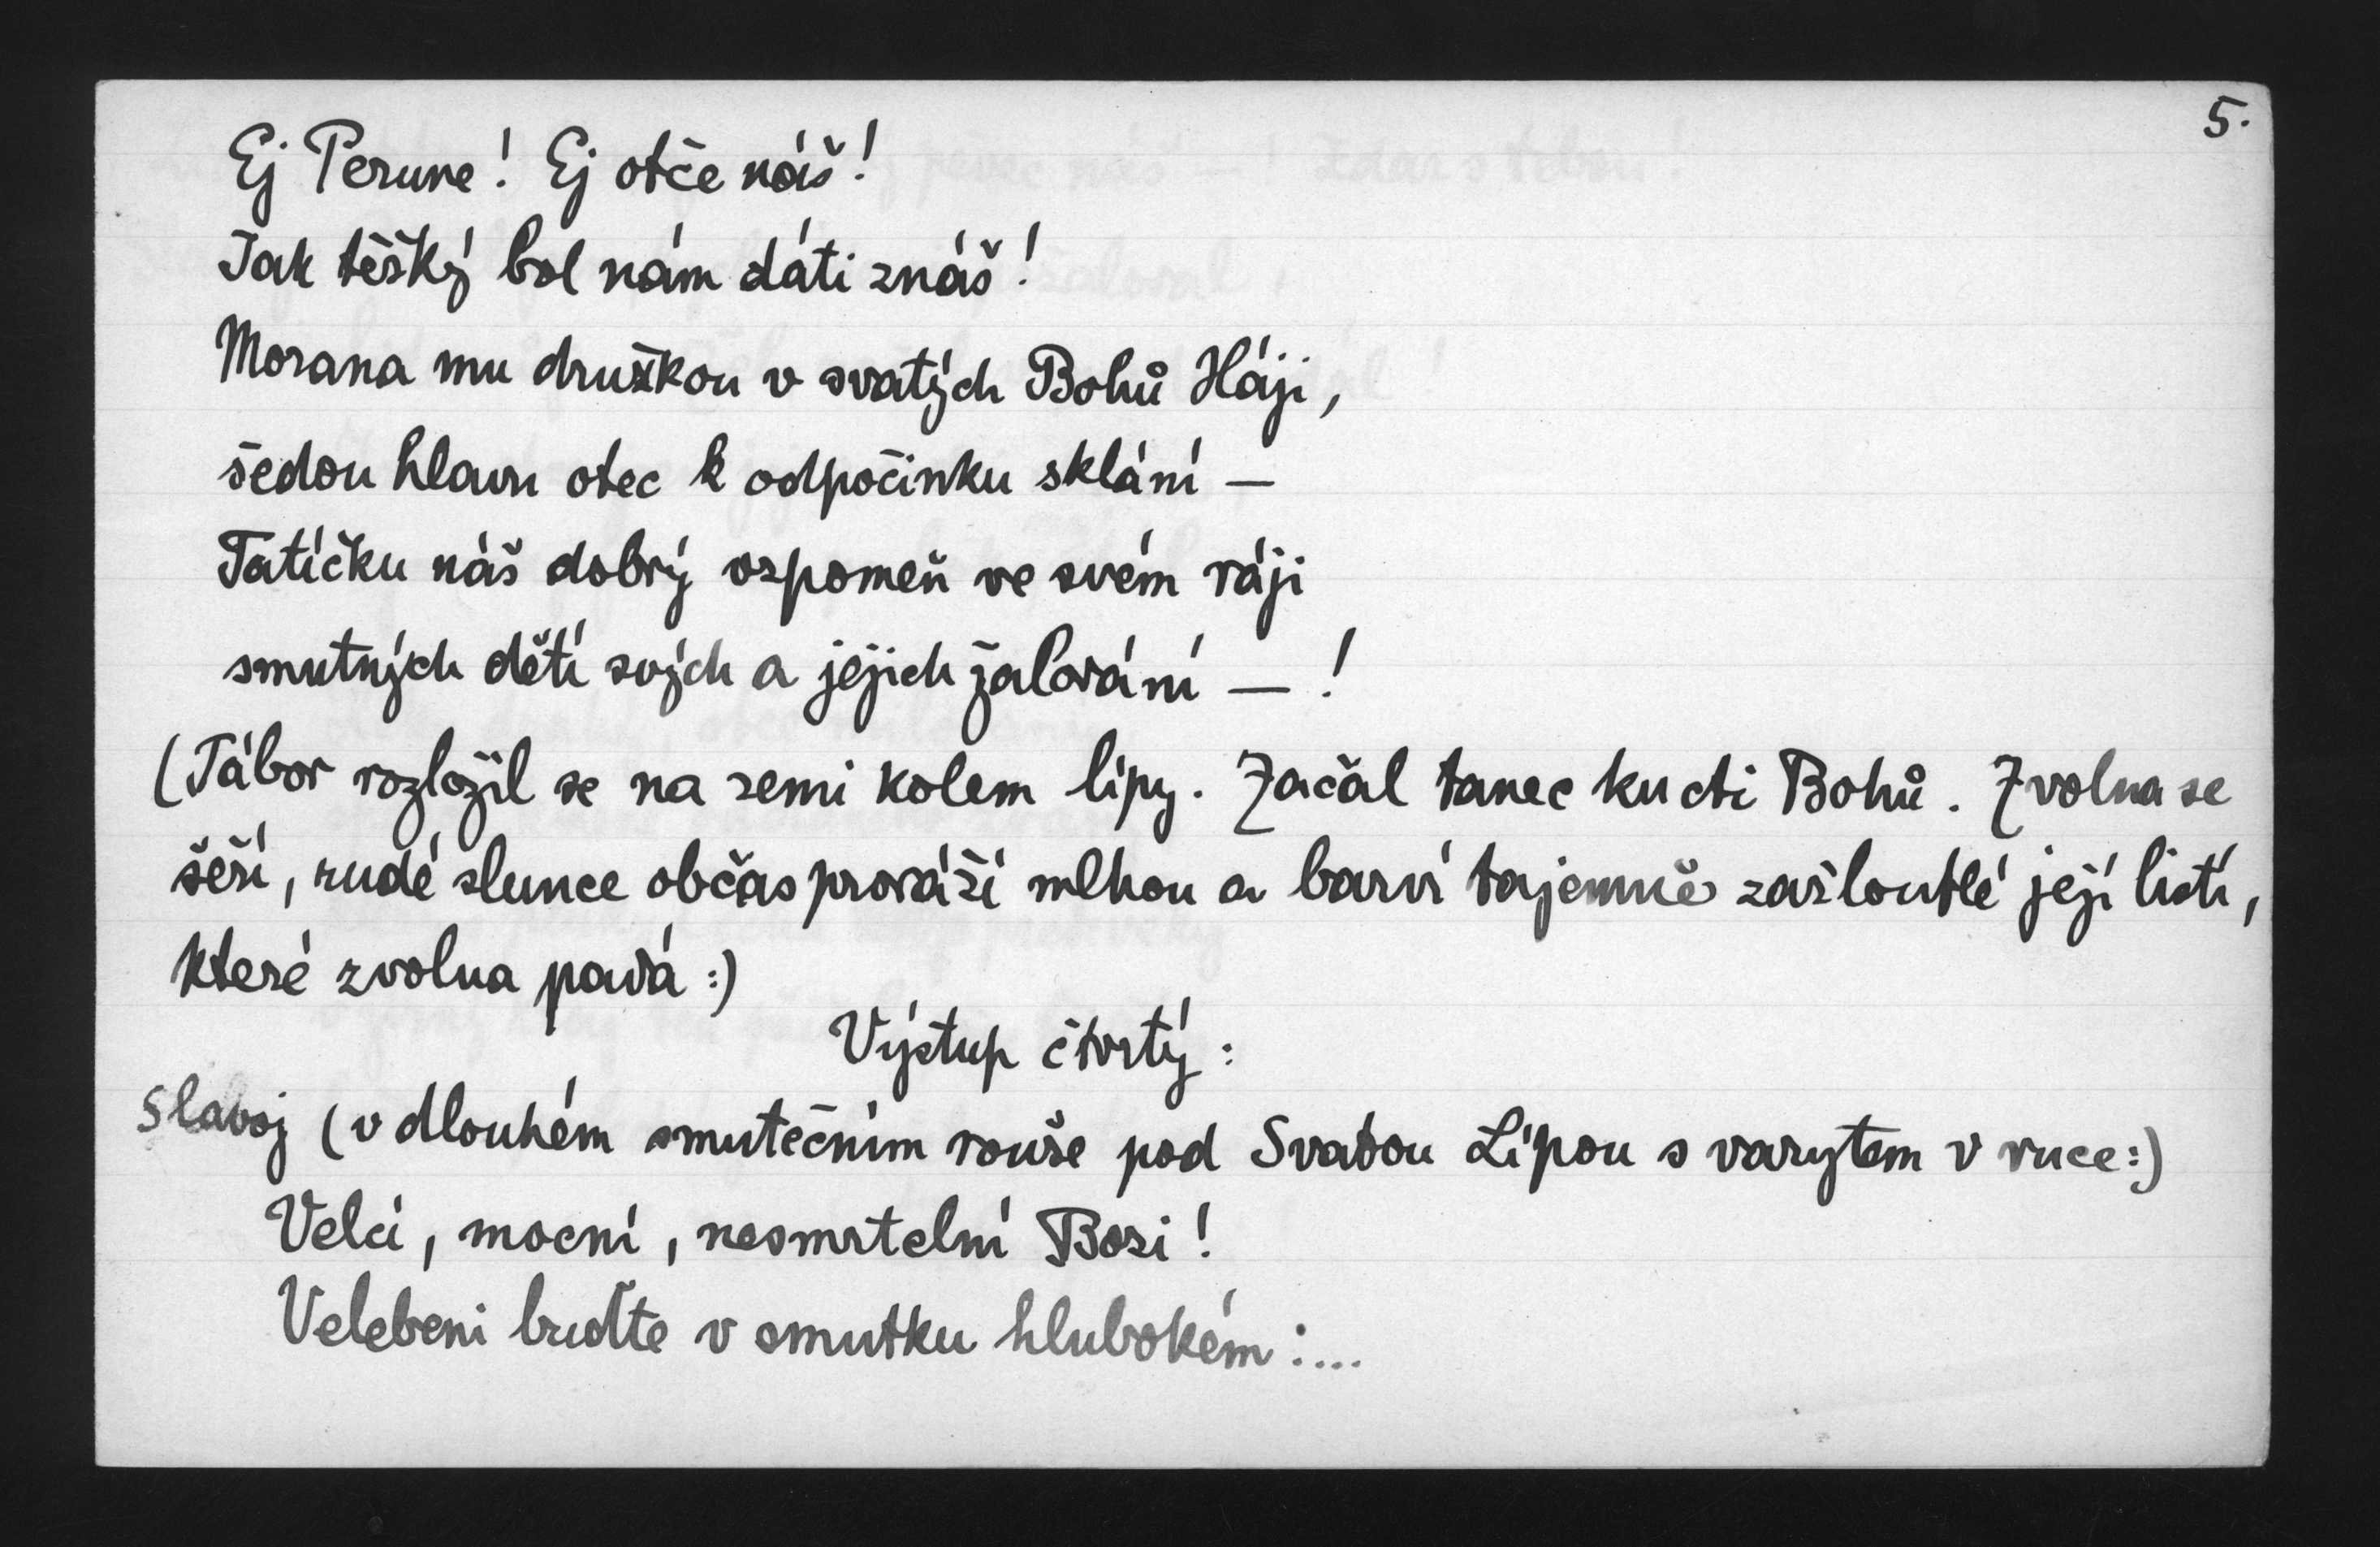 5.
Ej Perune! Ej otče náš!
Jak těžký bol nám dáti znáš!
Morana mu družkou v svatých Bohů Háji,
šedou hlavu otec k odpočinku sklání —
Tatíčku náš dobrý vzpomeň ve svém ráji
smutných dětí svých a jejich žalování — !
(Tábor rozložil se na zemi kolem lípy. Začal tanec ku cti Bohů. Zvolna se
šeří, rudé slunce občas prováží mlhou a barví tajemně zažloutlé její listí,
které zvolna padá :)
Výstup čtvrtý :
Slavoj (v dlouhém smutečním rouše pod Svatou Lípou s varytem v ruce :)
Velcí, mocní, nesmrtelní Bozi!
Velebeni buďte v smutku hlubokém : ...